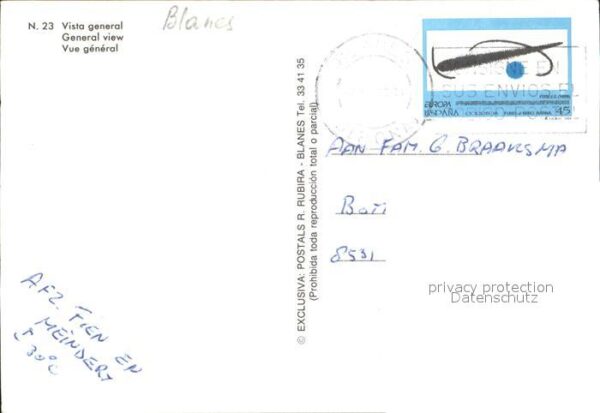 N. 23 Vista general
General view
Vue général
Blanes
BLANES
CONSIGNE EN
SUS ENVIOS EL
ESPAÑA
EUROPA
45
© EXCLUSIVA: POSTALS R. RUBIRA - BLANES Tel. 33 41 35
(Prohibida toda reproducción total o parcial)
AAN FAM. G. BRAAKSMA
8531
privacy protection
Datenschutz
AFZ. FIEN EN
MEINDERT
30°C